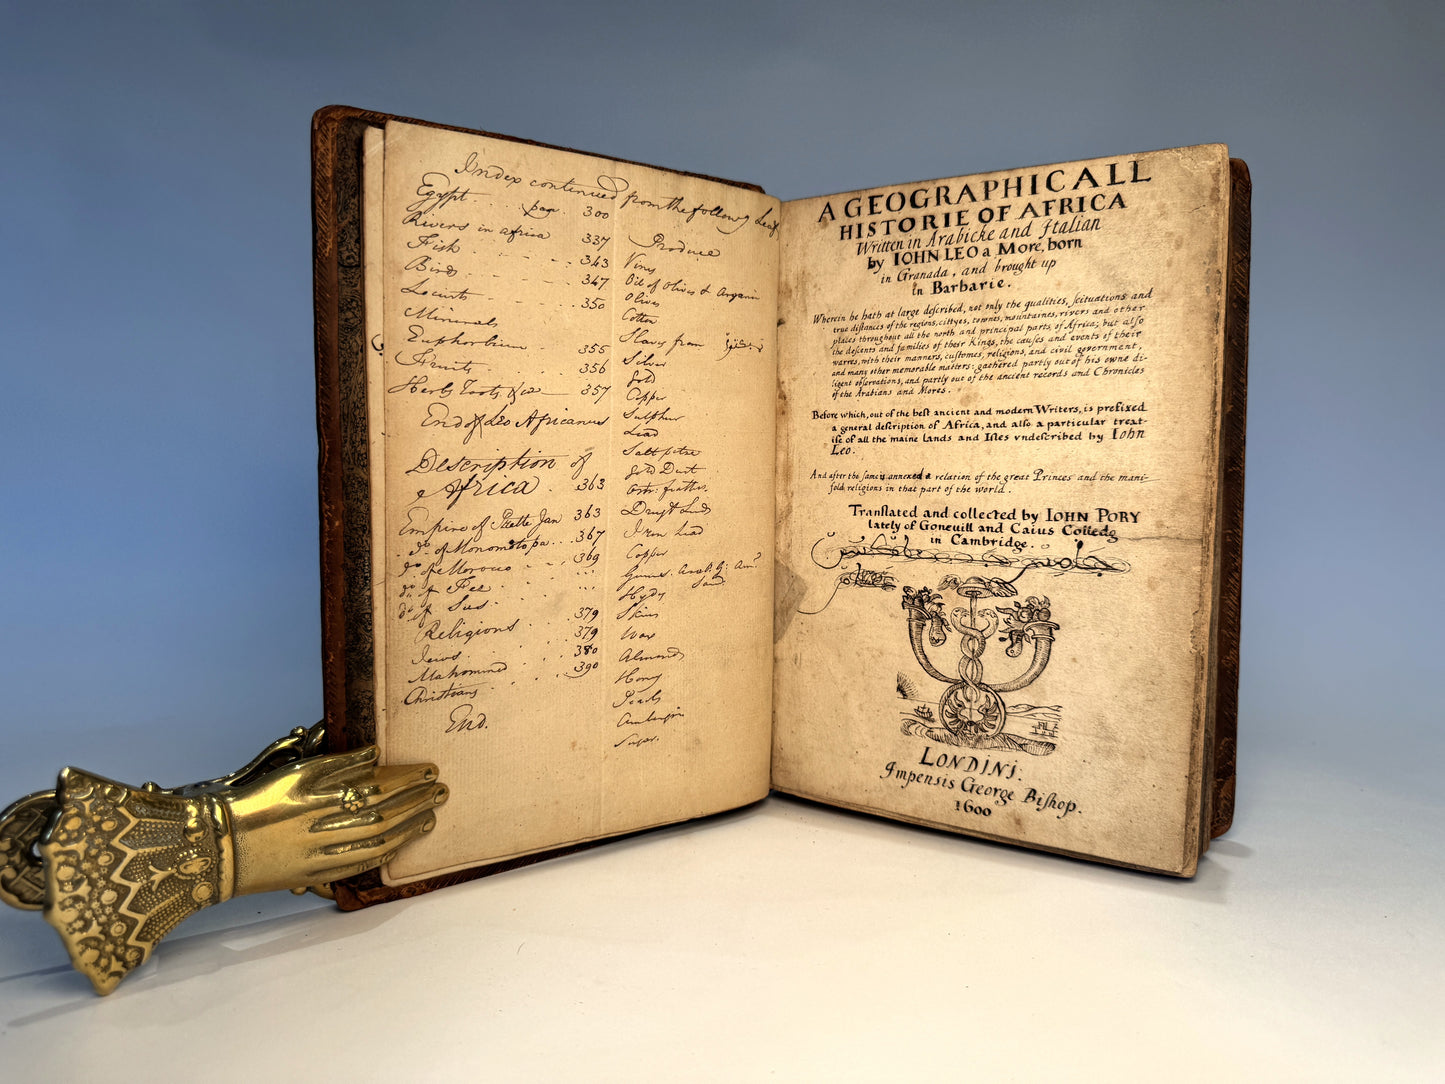 Index continued from the following Leaf
Egypt . . . page . 300
Rivers in africa 337
Fish . . . . 343
Birds . . . . 347
Locusts . . . 350
Minerals
Euphorbium . . 355
Fruits . . . . 356
Herbs Roots &ca . . 357
End of Leo Africanus
Description of
Africa . 363
Empire of Prette Jan 363
do. of Monomotopa . . 367
do of Morocco . . 369
do. of Fez . . . . . .
do. of Sus . . . . .
Religions . . . 379
Jews . . . . 379
Mahomind . . . 380
Christians . . . . 390
End.
Produce
Vines
Oil of Olives & Argann
Olives
Cotton
Slaves from
Silver
Gold
Copper
Sulphur
Lead
Saltpetre
Gold Dust
Ostr: feathers.
Iron lead
Copper
Gums. Arab: G:
Hyds
Skins
Wax
Almonds
Honey
Pearls
Sugar.
A GEOGRAPHICALL
HISTORIE OF AFRICA
Written in Arabicke and Italian
by IOHN LEO a More, born
in Granada, and brought up
in Barbarie.
Wherein he hath at large described, not only the qualities, scituations and
true distances of the regions, cittyes, townes, mountaines, rivers and other
places throughout all the north and principal parts of Africa; but also
the descents and families of their Kings, the causes and events of their
warres, with their manners, customes, religions, and civil government,
and many other memorable matters: gathered partly out of his owne di-
ligent observations, and partly out of the ancient records and Chronicles
of the Arabians and Mores.
Before which, out of the best ancient and modern Writers, is prefixed
a general description of Africa, and also a particular treat-
ise of all the maine lands and Isles vndescribed by Iohn
Leo.
And after the same is annexed a relation of the great Princes and the mani-
fold religions in that part of the world.
Translated and collected by IOHN PORY
lately of Gonevill and Caius Colledg
in Cambridge.
LONDINI.
Impensis George Bishop.
1600